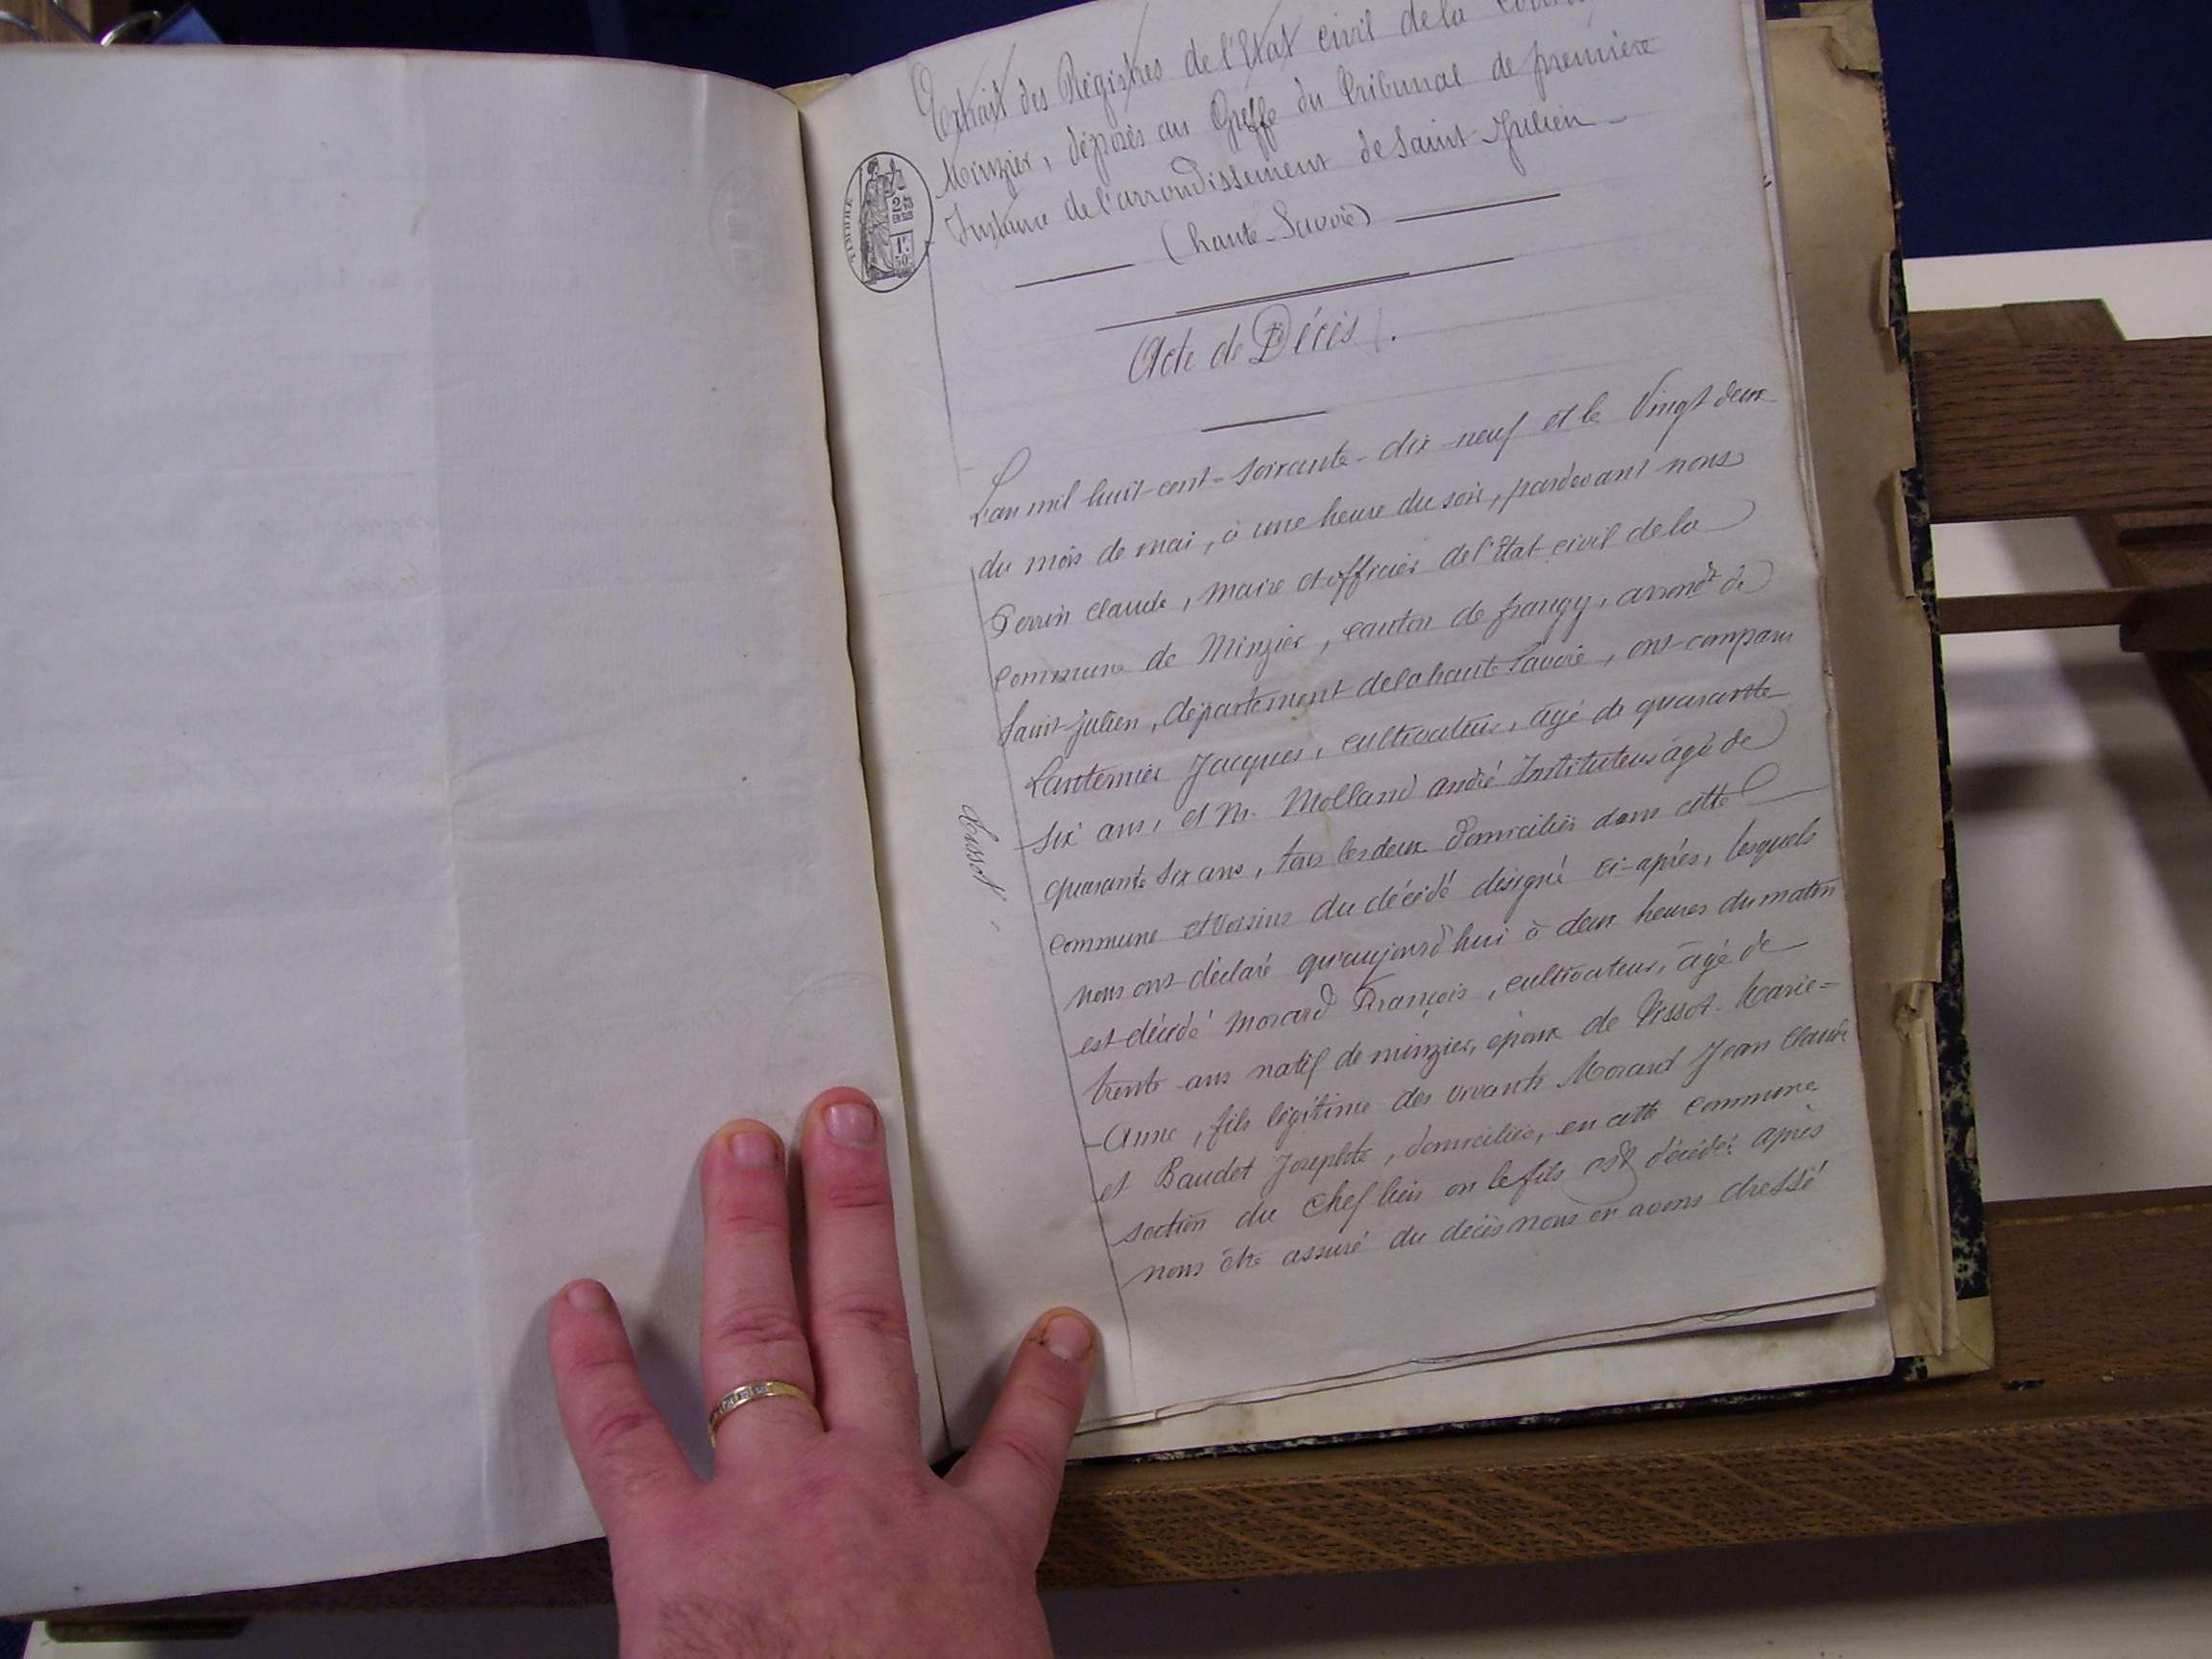 Extrait des Registres de l'Etat civil de la
Minzier, déposés au Greffe du Tribunal de première
Instance de l'arrondissement de Saint-Julien -
(haute-Savoie)
TIMBRE
Acte de Décès.
L'an mil huit-cent-soixante-dix neuf et le Vingt deux
du mois de mai, à une heure du soir, pardevant nous
Perrin claude, maire et officier de l'Etat civil de la
commune de Minzier, canton de frangy, arrondt de
Saint-julien, département de la haute Savoie, ont comparu
Lanternier Jacques, cultivateur, âgé de quarante
six ans, et M. Molland andré Instituteur âgé de
quarante six ans, tous les deux domiciliés dans cette
Tissot
commune et voisins du décédé désigné ci-après, lesquels
nous ont déclaré qu'aujourd'hui à deux heures du matin
est décédé Morard François, cultivateur, âgé de
trente ans natif de minzier, époux de Tissot Marie=
Anne, fils légitime des vivants Morard Jean Claude
et Baudet Josephte, domiciliés, en cette commune
section du chef lieu ou le fils est décédé: après
nous être assuré du décès nous en avons dressé